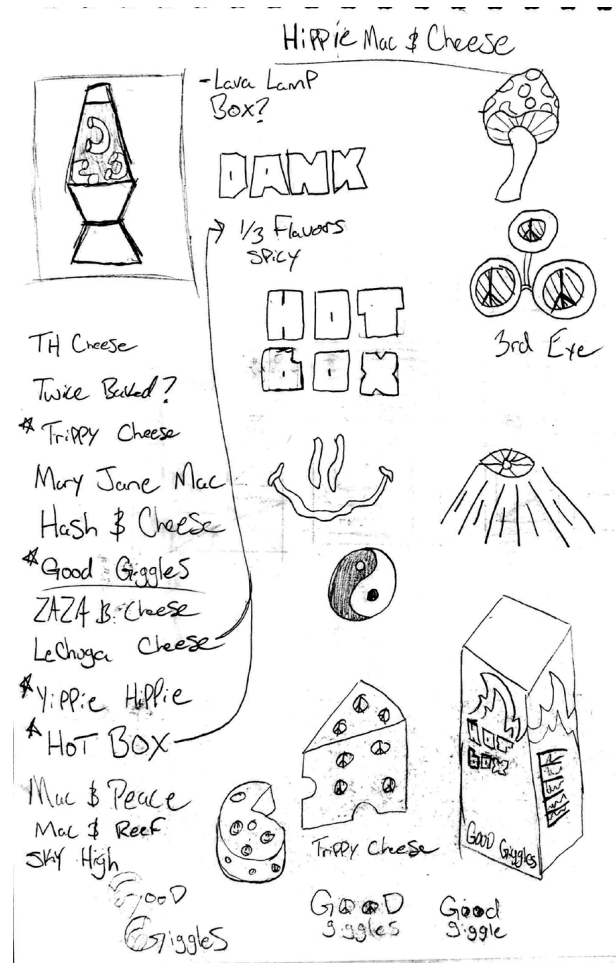 Hippie Mac & Cheese
-Lava Lamp
Box?
DANK
1/3 Flavors
SPicy
HOT
BOX
3rd Eye
TH Cheese
Twice Baked?
Trippy Cheese
Mary Jane Mac
Hash & Cheese
Good Giggles
ZAZA & Cheese
LeChuga Cheese
Yippie Hippie
HOT BOX
Mac & Peace
Mac & Reef
SKY High
Trippy Cheese
HOT
BOX
GOOD Giggles
GooD
Giggles
GOOD
giggles
Good
giggle